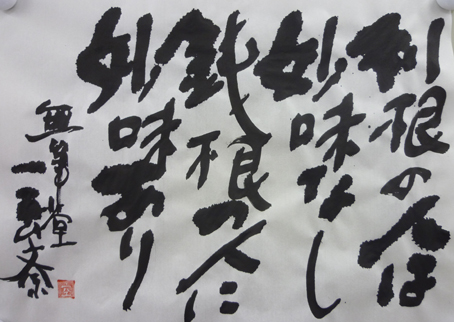 利根の人は
妙味なし
鈍根の人に
妙味あり
無 堂
一